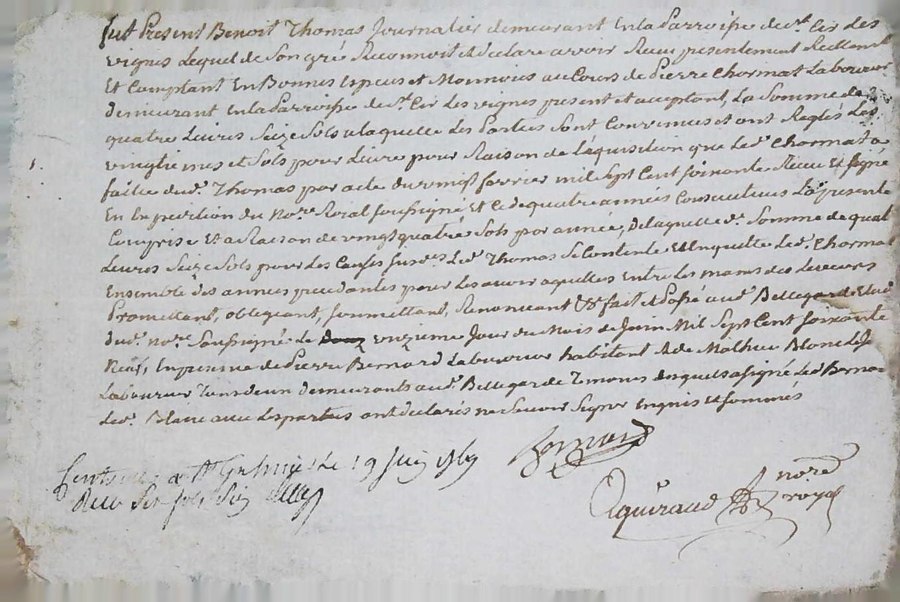 fut Present Benoit Thomas Journalier demeurant En la Parroisse de st. Cir Les
vignes Lequel de Son gré Reconnoit et declare avoir Recu presentement Reellement
Et Comptant En Bonnes Especes et Monnoies au Cours de Pierre Chormat Laboureur
demeurant En la Parroisse de st. Cir Les vignes present et acceptant, La Somme de
quatre Livres Seize Sols a laquelle des Parties Sont Convenues et ont Reglés Les
vingtiemes et Sols pour Livre pour Raison de L'équisition que Led. Chormat a
faite dud. Thomas par acte du vingt fevrier mil Sept Cent Soixante Recu Et Signé
En Expedition du nore. Roial Soussigné Et Ce de quatre années Consecutives La presente
Comprise Et a Raison de vingt quatre Sols par année, De laquelle d. Somme de quatre
Livres Seize Sols pour Les Causes Susd. Led. Thomas Se Contente Et En quitte Led. Chormat
Ensemble des années precedantes pour Les avoir acquittes Entre Les mains des Receveurs
Promettant, obligeant, Soumettant, Renoncant &c fait et Passé aud. Bellegarde Etude
dud. nore. Soussigné Le onzieme Jour du Mois de Juin Mil Sept Cent Soixante
Neuf, En presence de Pierre Bernard Laboureur habitant & de Mathieu Blanc
Laboureur Tous deux demeurants aud. Bellegarde Temoins desquels a signé Led. Bernard
Led. Blanc avec Les parties ont declarés ne Savoir Signer Enquis et Sommés
Bernard
Juin 1769
Reçu Six Sols Six
Aguiraud nore.
royal